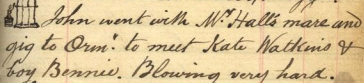 John went with Mr Hall's mare and
gig to Orm. to meet Kate Watkins &
boy Bennie. Blowing very hard.